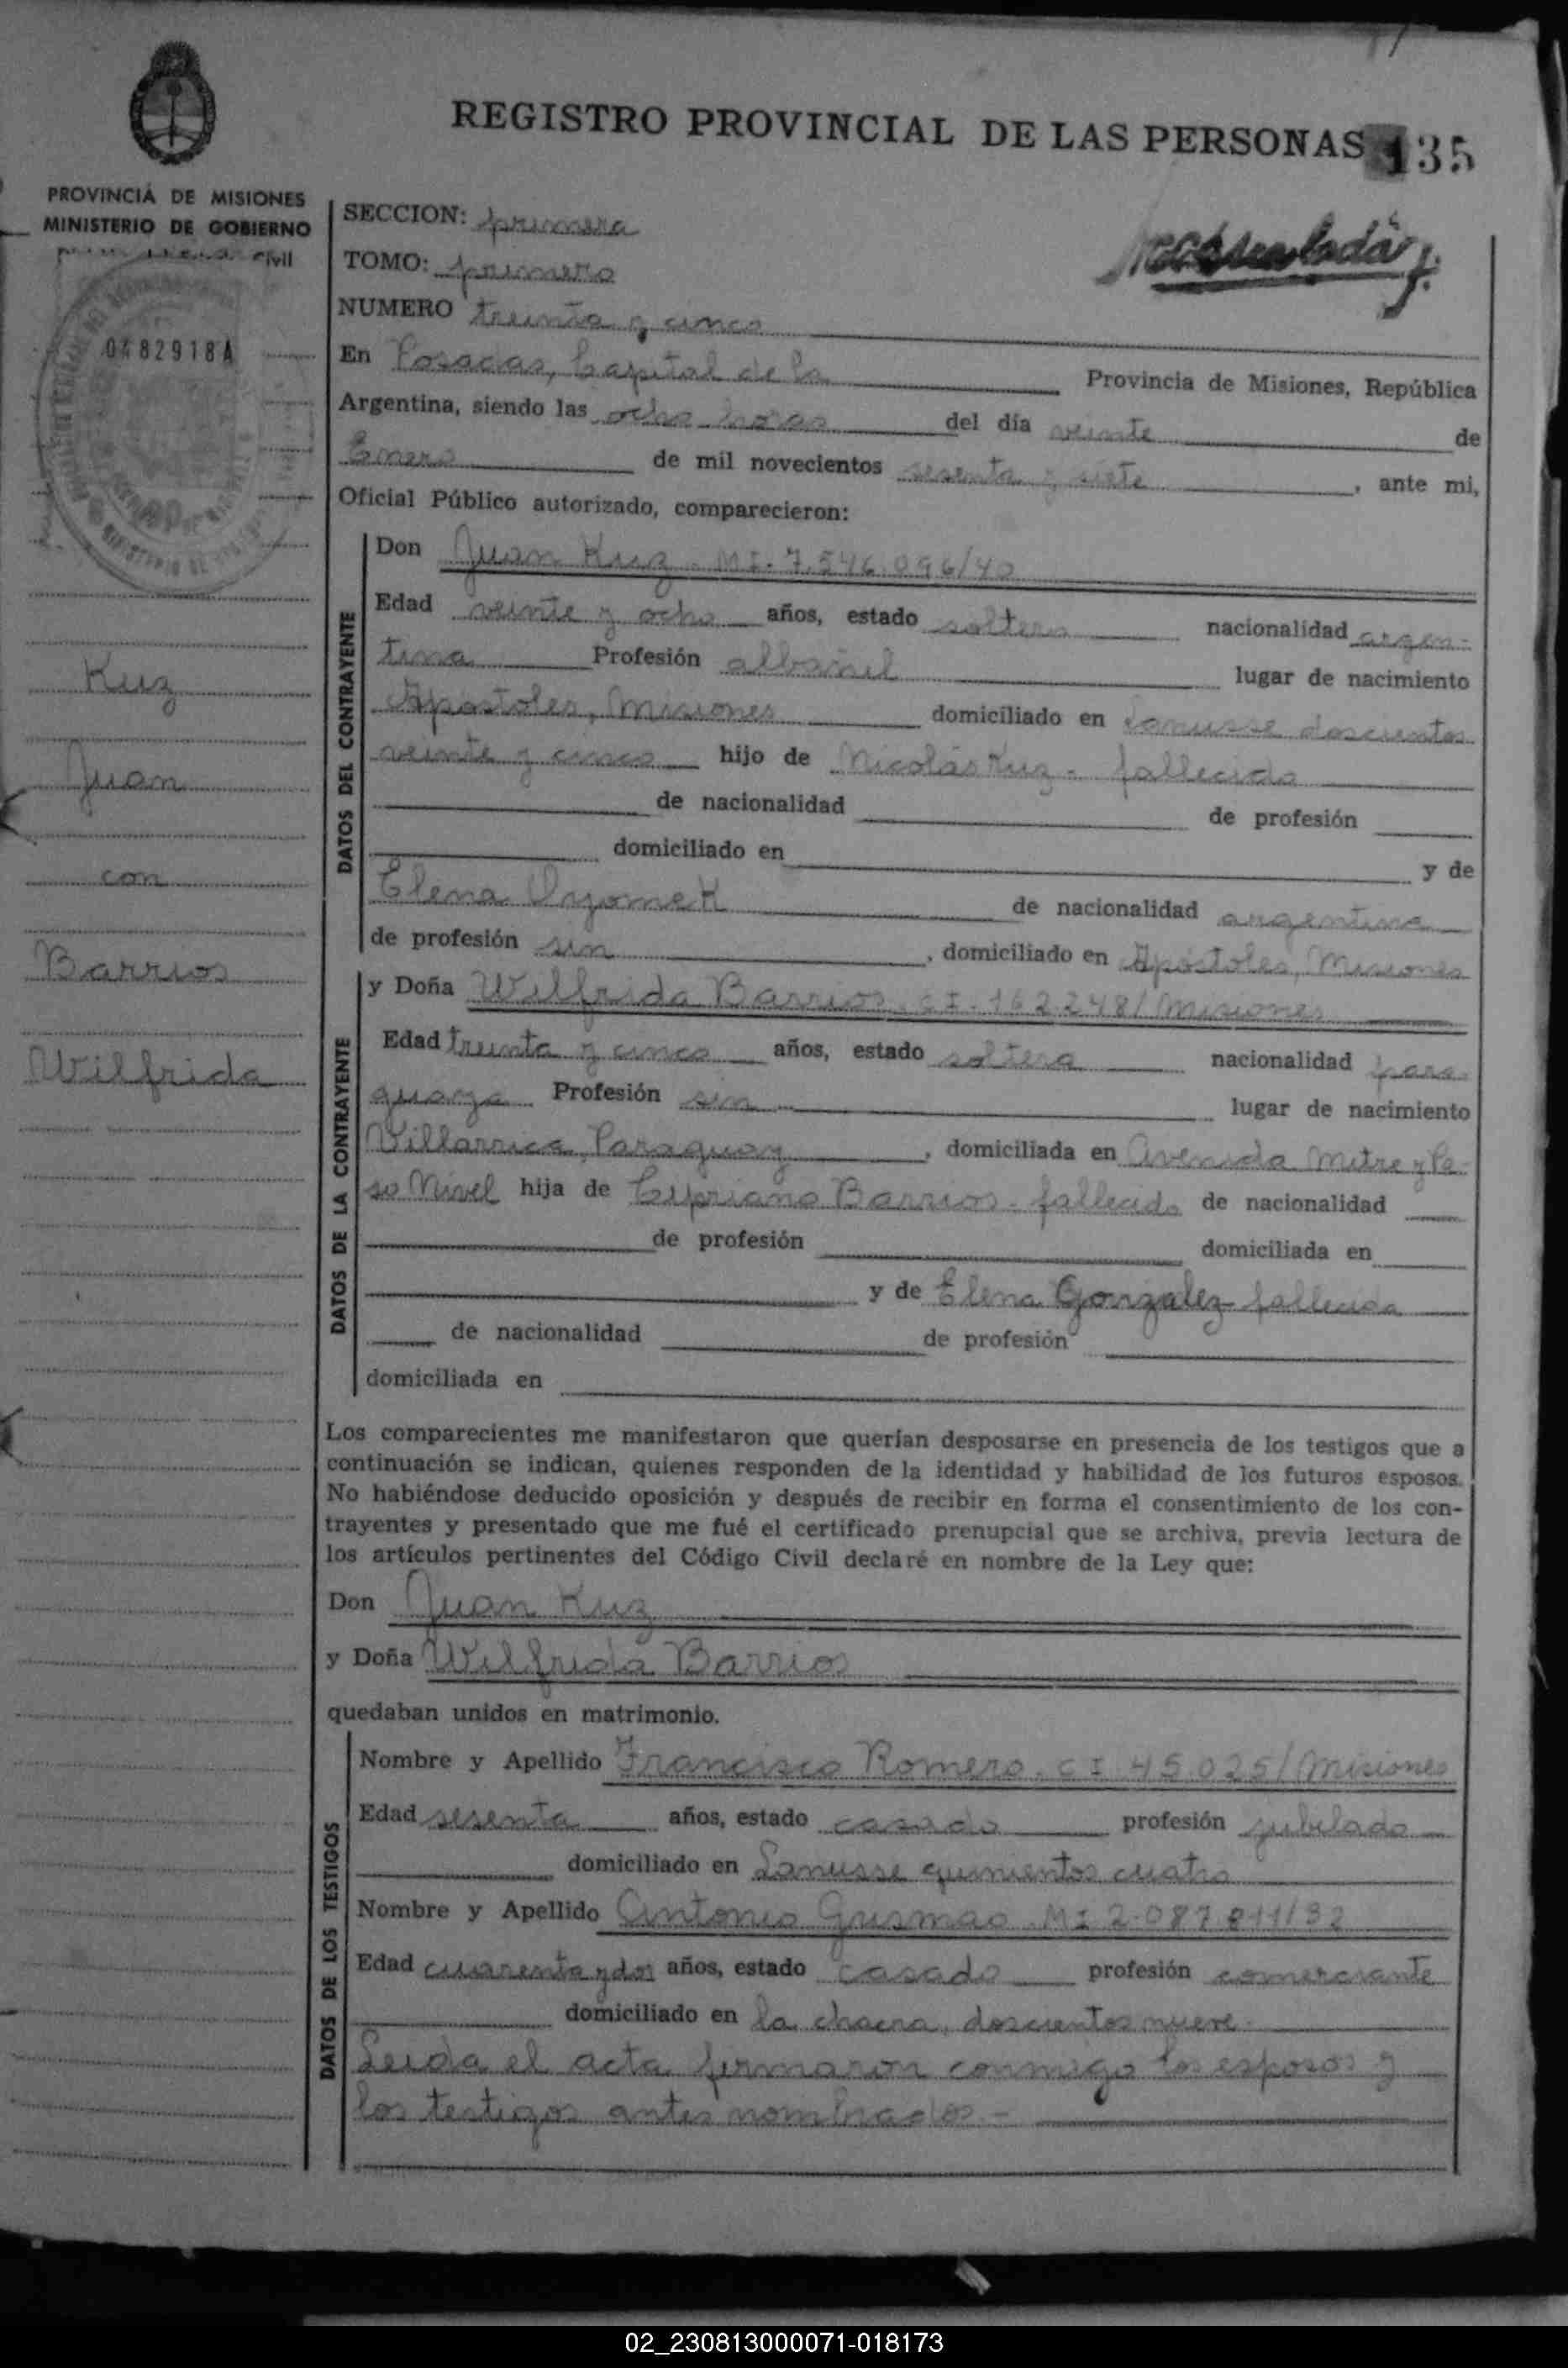 REGISTRO PROVINCIAL DE LAS PERSONAS 135
PROVINCIA DE MISIONES
MINISTERIO DE GOBIERNO
0482918A
Kuz
Juan
con
Barrios
Wilfrida
SECCION: primera
TOMO: primero
NUMERO treinta y cinco
En Posadas, Capital de la Provincia de Misiones, República
Argentina, siendo las ocho horas del día veinte de
Enero de mil novecientos sesenta y siete, ante mi,
Oficial Público autorizado, comparecieron:
DATOS DEL CONTRAYENTE
Don Juan Kuz. MI. 7.546.096/40
Edad veinte y ocho años, estado soltero nacionalidad argen-
tina Profesión albañil lugar de nacimiento
Apóstoles, Misiones domiciliado en Lanusse doscientos
veinte y cinco hijo de Nicolás Kuz - fallecido
de nacionalidad de profesión
domiciliado en y de
Elena de nacionalidad argentina
de profesión sin, domiciliado en Apóstoles, Misiones
DATOS DE LA CONTRAYENTE
y Doña Wilfrida Barrios. CI. 162.248/Misiones
Edad treinta y cinco años, estado soltera nacionalidad para-
guaya Profesión sin lugar de nacimiento
Villarrica, Paraguay, domiciliada en Avenida Mitre y Pa-
so Nivel hija de Cipriano Barrios - fallecido de nacionalidad
de profesión domiciliada en
y de Elena Gonzalez fallecida
de nacionalidad de profesión
domiciliada en
Los comparecientes me manifestaron que querían desposarse en presencia de los testigos que a
continuación se indican, quienes responden de la identidad y habilidad de los futuros esposos.
No habiéndose deducido oposición y después de recibir en forma el consentimiento de los con-
trayentes y presentado que me fué el certificado prenupcial que se archiva, previa lectura de
los artículos pertinentes del Código Civil declaré en nombre de la Ley que:
Don Juan Kuz
y Doña Wilfrida Barrios
quedaban unidos en matrimonio.
DATOS DE LOS TESTIGOS
Nombre y Apellido Francisco Romero. CI 45.025/Misiones
Edad sesenta años, estado casado profesión jubilado
domiciliado en Lanusse quinientos cuatro
Nombre y Apellido Antonio Gusmao. MI 2.087.811/32
Edad cuarenta y dos años, estado casado profesión comerciante
domiciliado en la chacra, doscientos nueve.
Leida el acta firmaron conmigo los esposos y
los testigos antes nombrados.-
02_230813000071-018173